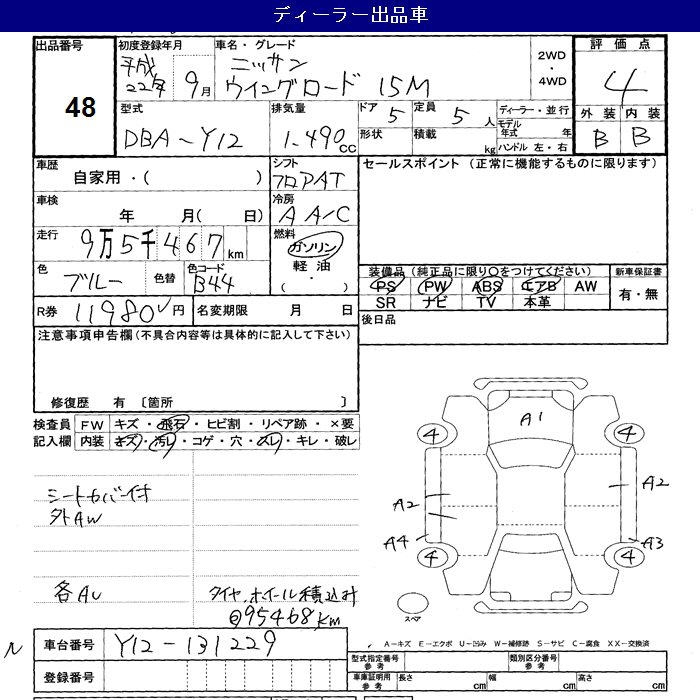 ディーラー出品車
出品番号 初度登録年月 車名・グレード 2WD・4WD 評価点
48 平成22年 9月 ニッサン ウイングロード 15M 4
型式 排気量 ドア 5 定員 5人 ディーラー・並行 外装 内装
DBA-Y12 1.490cc 形状 積載 kg モデル年式 年 B B
ハンドル 左・右
車歴 シフト セールスポイント (正常に機能するものに限ります)
自家用・( ) フロアAT
車検 冷房
年 月( 日) AA/C
走行 燃料
9万5千467km ガソリン
軽油
( ・ )
色 色替 色コード 装備品 (純正品に限り○をつけてください) 新車保証書
ブルー B44 PS PW ABS エアB AW 有・無
SR ナビ TV 本革
R券 11980円 名変期限 月 日 後日品
注意事項申告欄(不具合内容等は具体的に記入して下さい)
修復歴 有 〔箇所 〕
検査員 FW キズ・飛石・ヒビ割・リペア跡・×要
記入欄 内装 キズ・汚レ・コゲ・穴・スレ・キレ・破レ
シートカバー付
外AW
各AU
タイヤ、ホイール積込み
@95468km
A1
4 4
A2 A2
A4 A3
4 4
スペア
A-キズ E-エクボ U-凹み W-補修跡 S-サビ C-腐食 XX-交換済
N 車台番号 Y12-131229
登録番号
型式指定番号 参考 類別区分番号 参考
車庫証明用 参考 長さ cm 幅 cm 高さ cm